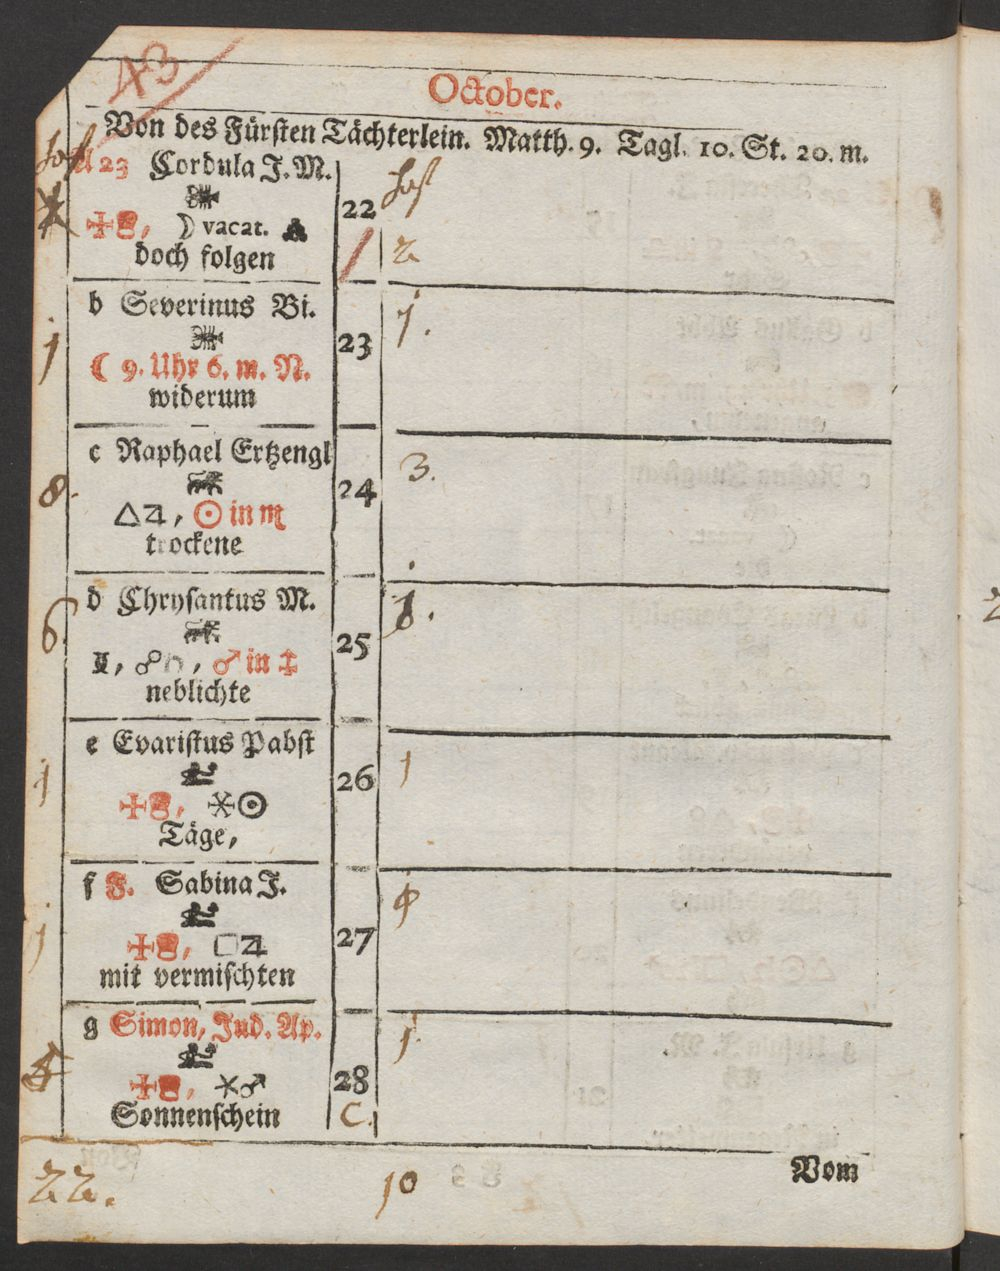 43
October.
Von des Fürsten Tächterlein. Matth. 9. Tagl. 10. St. 20. m.
A 23 Cordula J. M.
22
☽ vacat.
2
doch folgen
b Severinus Bi.
1
23
1.
☾ 9. Uhr 6. m. N.
widerum
c Raphael Ertzengl
8.
24
3.
△♃, ☉ in ♏
trockene
d Chrysantus M.
6.
25
1.
♂ in ♐
neblichte
e Evaristus Pabst
1
26
1
⚹☉
Täge,
f F. Sabina J.
1
27
□♃
mit vermischten
g Simon, Jud. Ap.
4
28
1.
⚹♂
Sonnenschein
C.
22.
10
Vom